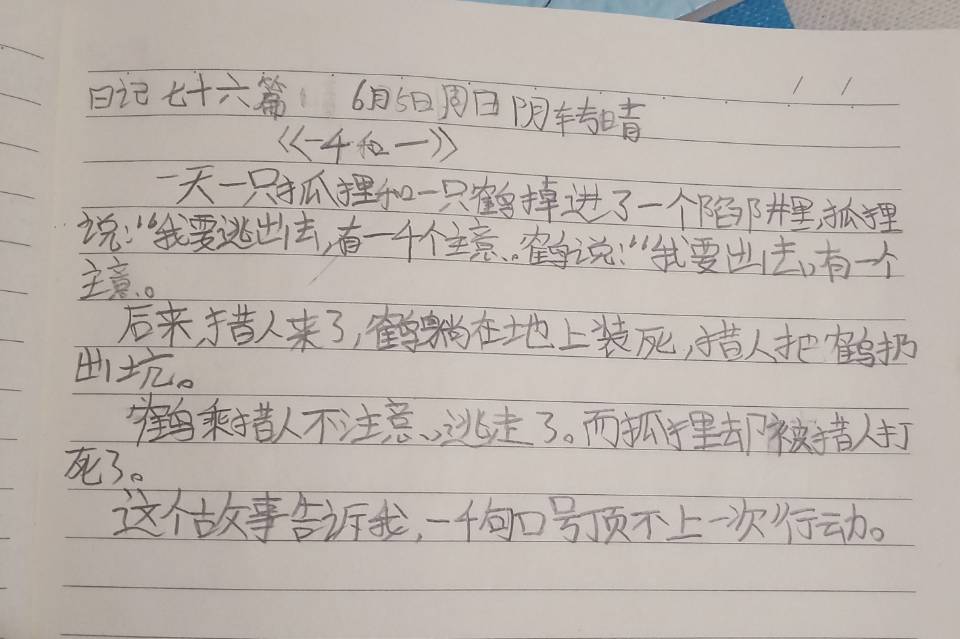 日记七十六篇 6月5日周日阴转晴
《一千和一》
一天一只狐狸和一只鹤掉进了一个陷阱里,狐狸
说:“我要逃出去,有一千个主意。鹤说:“我要出去,有一个
主意。
后来,猎人来了,鹤躺在地上装死,猎人把鹤扔
出坑。
鹤乘猎人不注意、逃走了。而狐狸却被猎人打
死了。
这个故事告诉我,一千句口号顶不上一次行动。